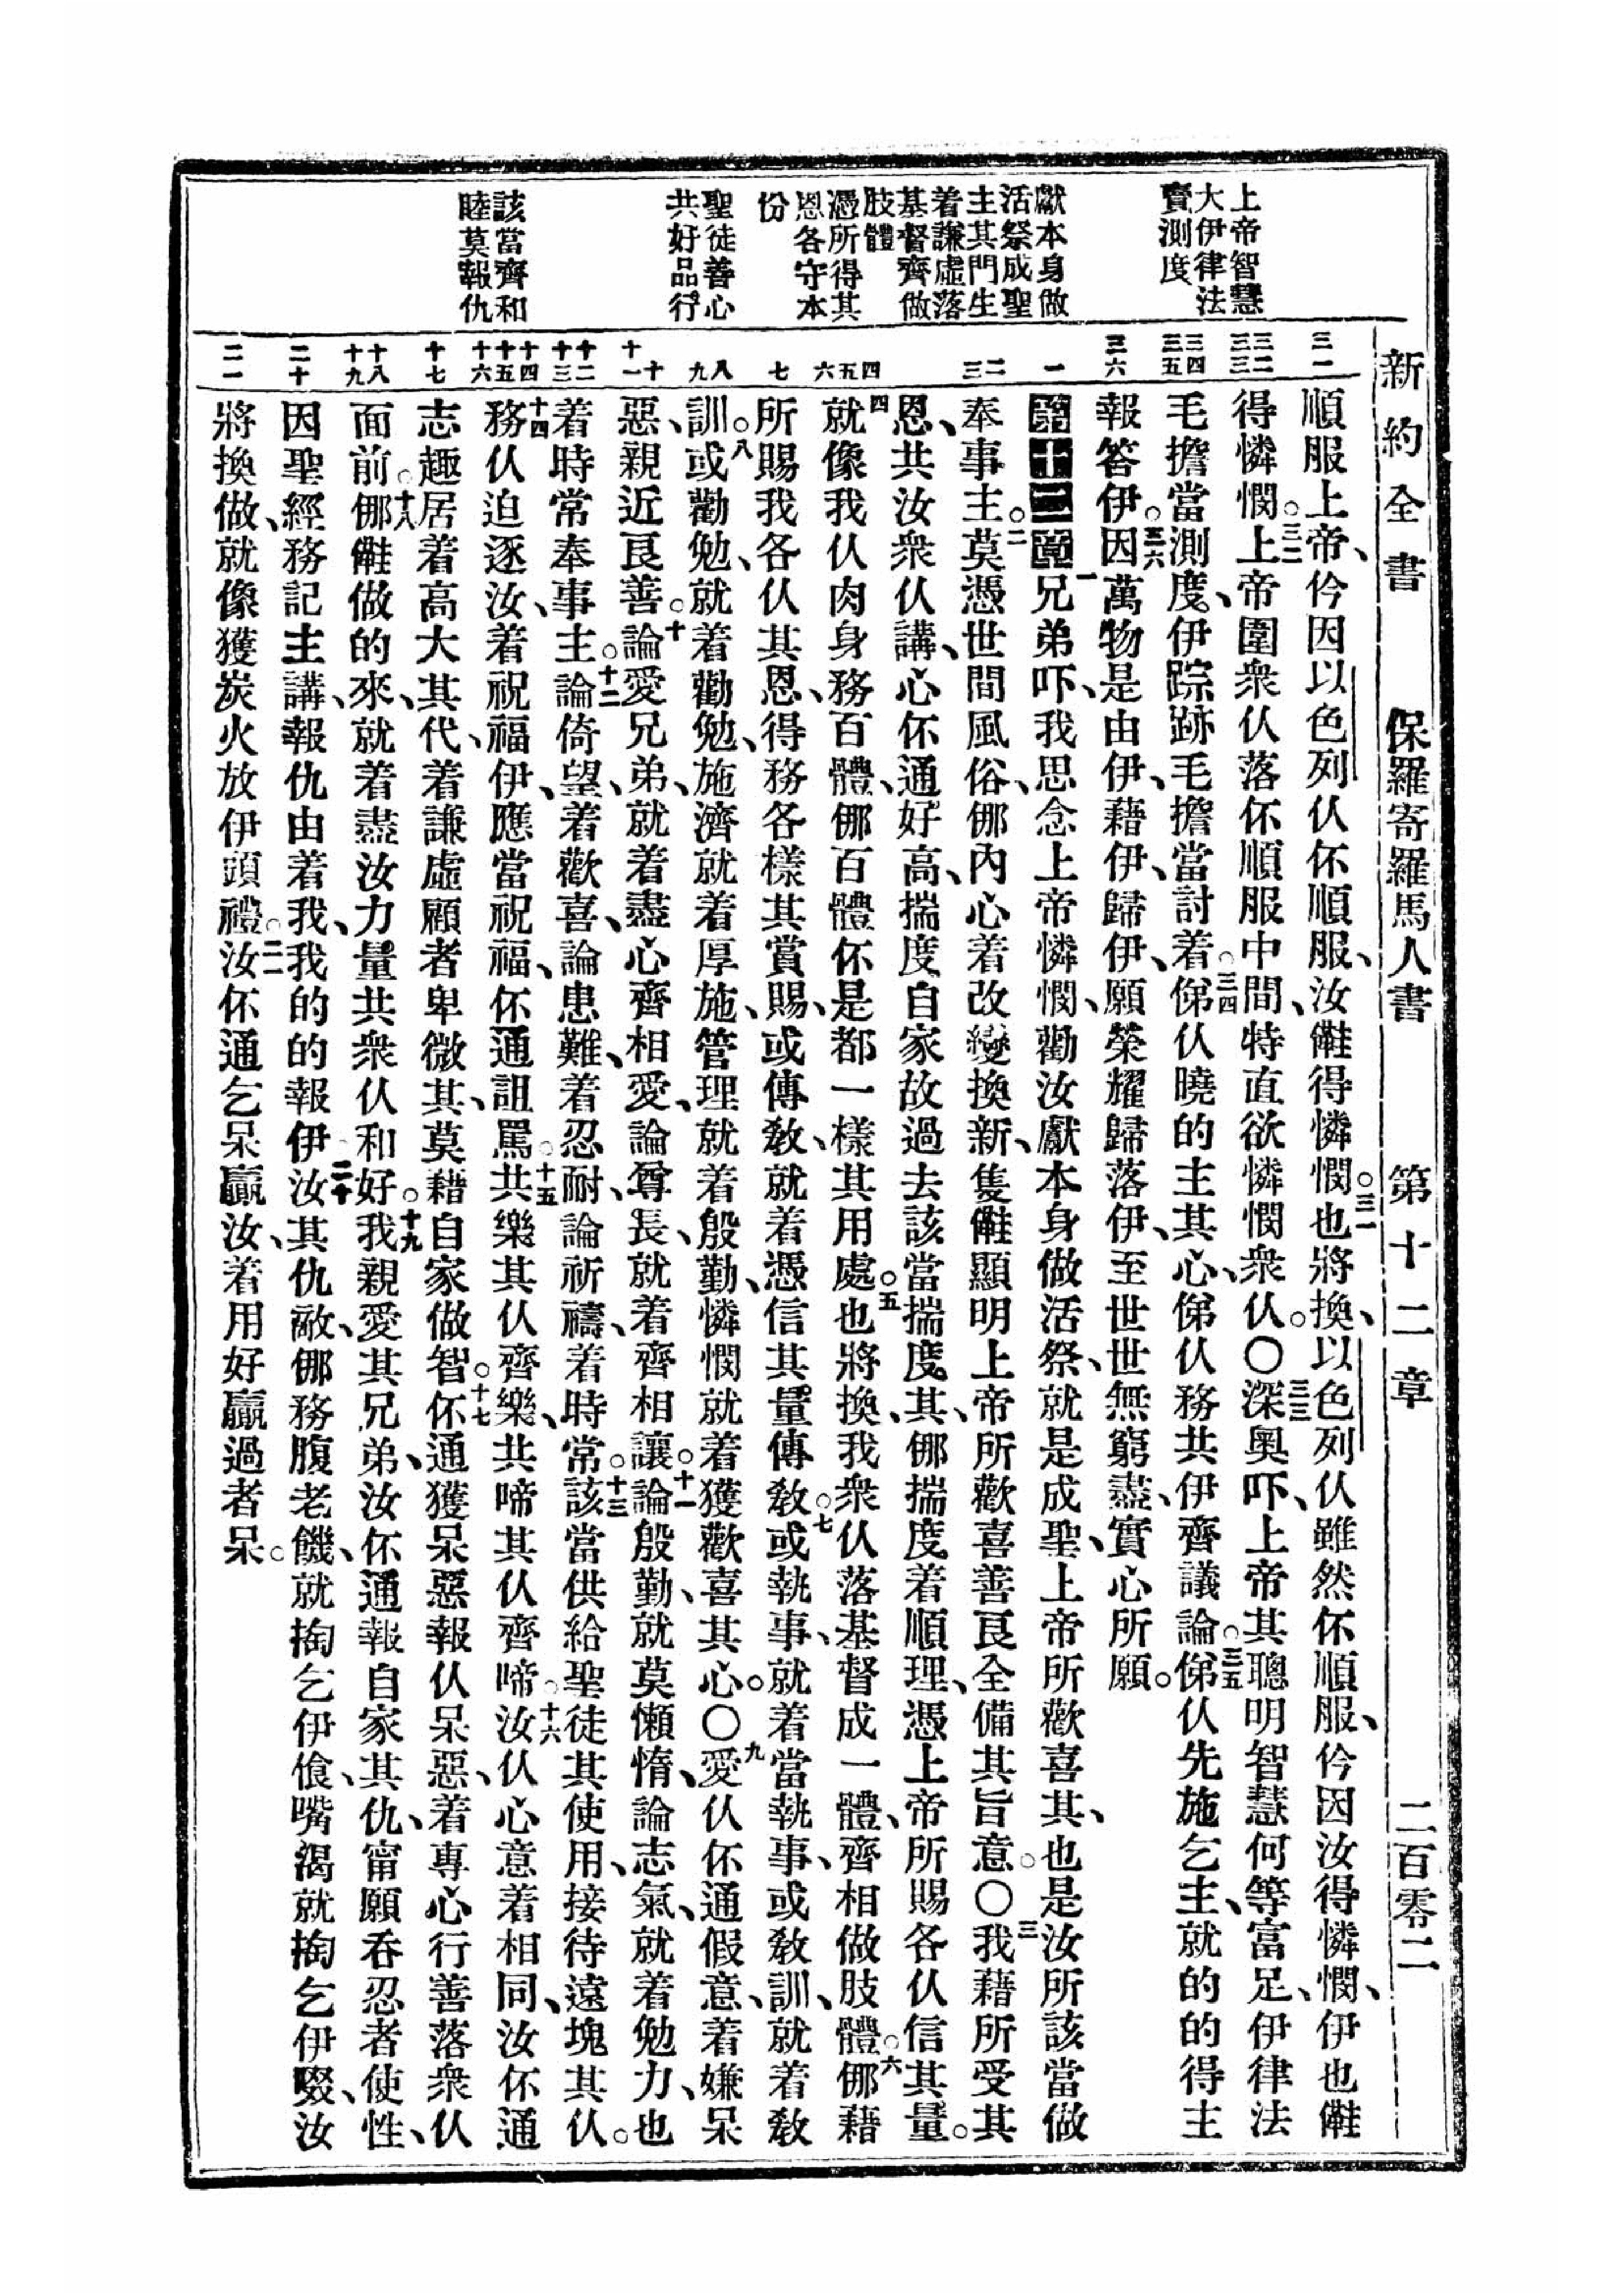 新約全書　保羅寄羅馬人書　第十二章　二百零二
上帝智慧
大伊律法
賣測度
獻本身做
活祭成聖
主其門生
着謙虛落
基督齊做
肢體
憑所得其
恩各守本
份
聖徒善心
共好品行
該當齊和
睦莫報仇
順服上帝、仱因以色列仈伓順服、汝𣍐得憐憫。三一也將換、以色列仈雖然伓順服、仱因汝得憐憫、伊也𣍐
得憐憫。三二上帝圍衆仈落伓順服中間、特直欲憐憫衆仈。〇三三深奥吓、上帝其聰明智慧何等富足、伊律法
毛擔當測度、伊踪跡毛擔當討着。三四俤仈曉的主其心、俤仈務共伊齊議論。三五俤仈先施乞主、就的的得主
報答伊。三六因萬物是由伊、藉伊、歸伊、願榮耀歸落伊、至世世無窮盡、實心所願。
第十二章一兄弟吓、我思念上帝憐憫、勸汝獻本身做活祭、就是成聖、上帝所歡喜其、也是汝所該當做
奉事主。二莫憑世間風俗、㑚內心着改變換新、隻𣍐顯明上帝所歡喜善良全備其旨意。〇三我藉所受其
恩、共汝衆仈講、心伓通好高、揣度自家故過去該當揣度其、㑚揣度着順理、憑上帝所賜各仈信其量。
四就像我仈肉身務百體、㑚百體伓是都一樣其用處。五也將換、我衆仈落基督成一體、齊相做肢體。六㑚藉
所賜我各仈其恩、得務各樣其賞賜、或傳教、就着憑信其量傳教。七或執事、就着當執事、或教訓、就着教
訓。八或勸勉、就着勸勉、施濟就着厚施、管理就着殷勤、憐憫就着獲歡喜其心。〇九愛仈伓通假意、着嫌呆
惡、親近良善。十論愛兄弟、就着盡心齊相愛、論尊長、就着齊相讓。十一論殷勤、就莫懶惰、論志氣、就着勉力、也
着時常奉事主。十二論倚望、着歡喜、論患難、着忍耐、論祈禱、着時常。十三該當供給聖徒其使用、接待遠塊其仈。
十四務仈迫逐汝、着祝福伊、應當祝福、伓通詛罵。十五共樂其仈齊樂、共啼其仈齊啼。十六汝仈心意着相同、汝伓通
志趣居着高大其代、着謙虛顧者卑微其、莫藉自家做智。十七伓通獲呆惡報仈呆惡、着專心行善落衆仈
面前。十八㑚𣍐做的來、就着盡汝力量共衆仈和好。十九我親愛其兄弟、汝伓通報自家其仇、甯願吞忍者使性、
因聖經務記主講、報仇由着我、我的的報伊。二十汝其仇敵、㑚務腹老饑、就掏乞伊飡、嘴渴就掏乞伊啜、汝
將換做、就像獲炭火放伊頭禮。二一汝伓通乞呆贏汝、着用好贏過者呆。